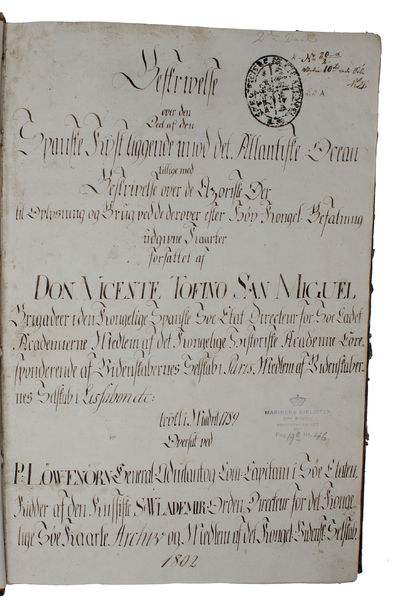 Beskrivelse
over den
Deel af den
Spanske Kyst liggende imod det Atlantiske Ocean
tillige med
Beskrivelse over de Azoriske Øer
til Oplysning og Brug ved de derover efter Høy Kongel. Befalning
udgivne Kaarter
forfattet af
DON VICENTE TOFINO SAN MIGUEL
Brigadeer i den Kongelige Spanske Søe Etat Directeur for Søe Cadet
Academierne Medlem af det Kongelige Historiske Academie Corre,
sponderende af Videnskabernes Selskab i Paris, Medlem af Videnskaber-
nes Selskab i Lissabon etc:
trÿkt i Madrid 1789
Oversat ved
P. LÖWENÖRN General-Adjutant og Com-Capitain i Søe Etaten,
Ridder af den Russiske St WLADEMIR Orden, Directeur for det Konge-
lige Søe Kaarte Archiv og Medlem af det Kongel. Selskab.
1802
MARINENS BIBLIOTEK